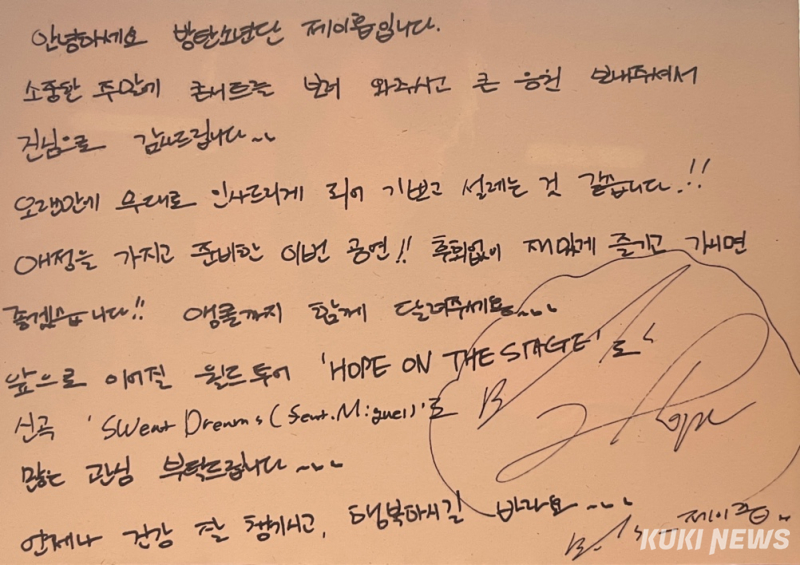 안녕하세요 방탄소년단 제이홉입니다.
소중한 주말에 콘서트를 보러 와주시고 큰 응원 보내주셔서
진심으로 감사드립니다~~
오랜만에 무대로 인사드리게 되어 기쁘고 설레는 것 같습니다.!!
애정을 가지고 준비한 이번 공연!! 후회없이 재밌게 즐기고 가시면
좋겠습니다!! 앵콜까지 함께 달려주세요~~~
앞으로 이어질 월드투어 'HOPE ON THE STAGE'로
신곡 'Sweet Dreams (feat. Miguel)'로
많은 관심 부탁드립니다~~~
언제나 건강 잘 챙기시고, 행복하시길 바라요~~~
제이홉
Hope
KUKI NEWS